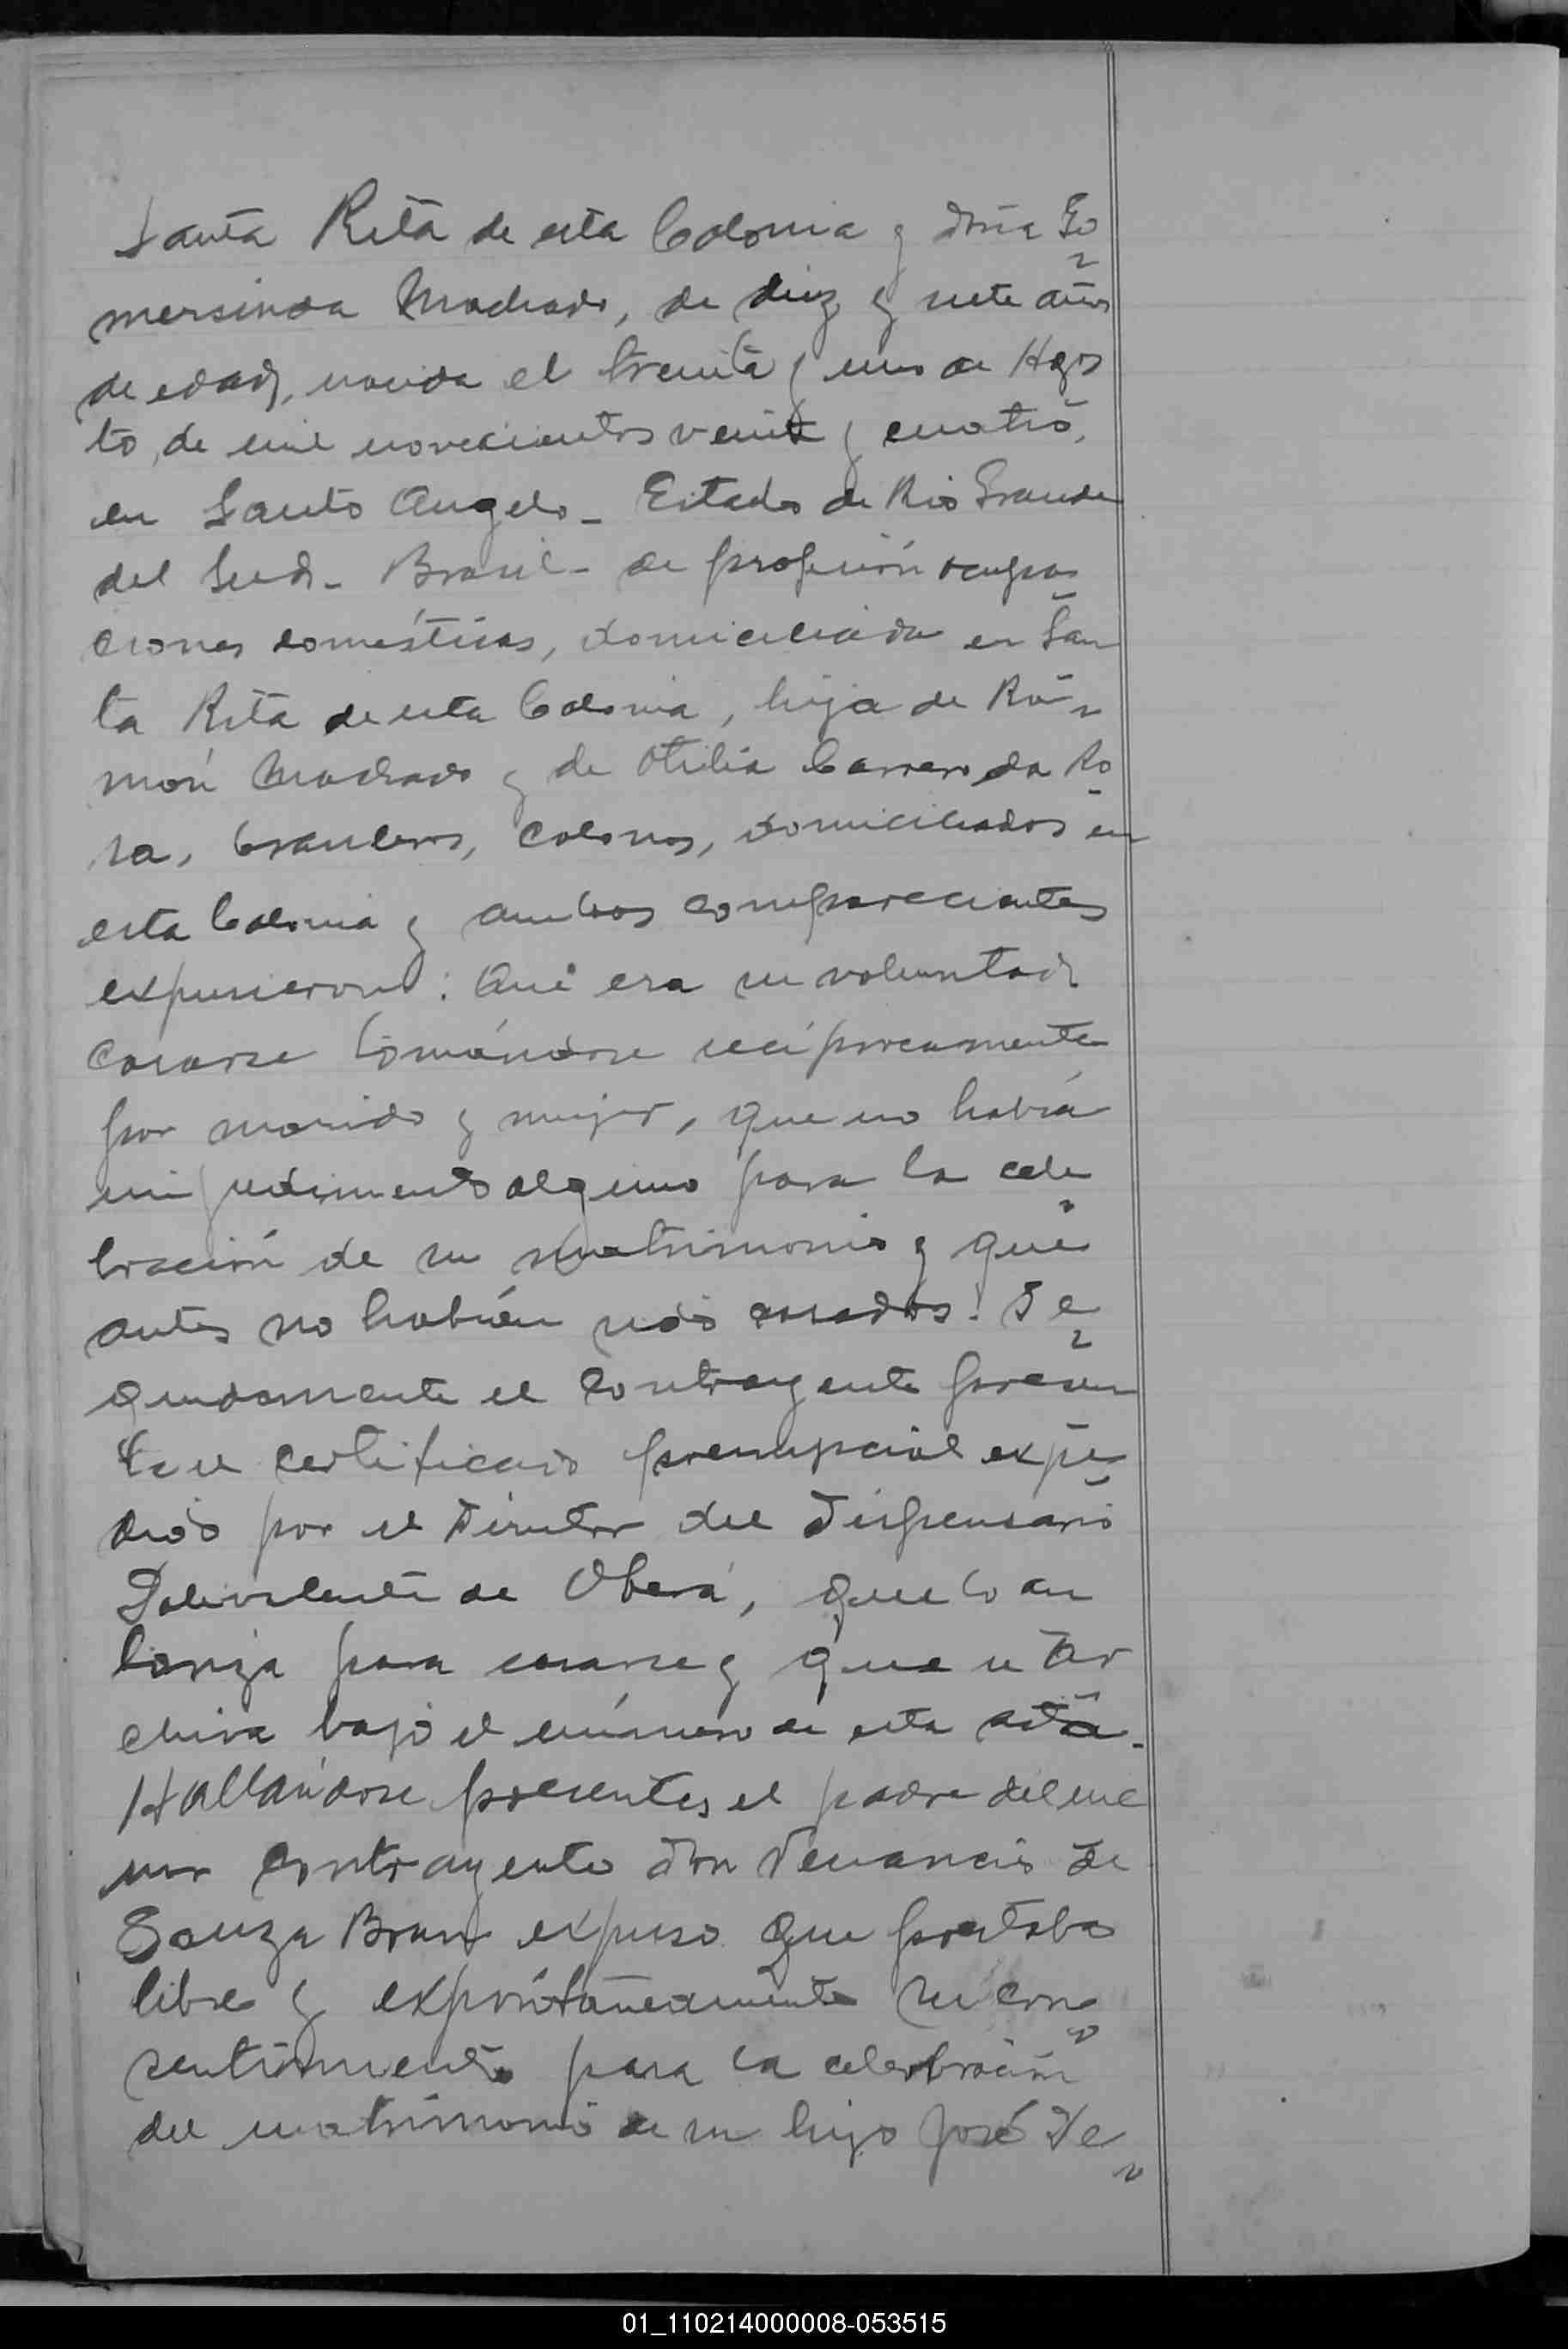 Santa Rita de esta Colonia y doña Go
mersinda Machado, de diez y siete años
de edad, nacida el treinta y uno de Agos
to, de mil novecientos veinte y cuatro,
en Santo Angelo - Estado de Rio Grande
del Sud - Brasil - de profesión ocupa
ciones domésticas, domiciliada en San
ta Rita de esta Colonia, hija de Ra
món Machado y de Otilia Carrero da Ro
sa, brasileros, colonos, domiciliados en
esta Colonia y ambos comparecientes
expusieron: Que era su voluntad
casarse tomándose recíprocamente
por marido y mujer, que no había
impedimento alguno para la cele
bración de su matrimonio y que
antes no habían sido casados. Se
guidamente el contrayente presen
ta el certificado prenupcial expe
dido por el Director del Dispensario
Polivalente de Oberá, que lo au
toriza para casarse y que se ar
chiva bajo el número de esta acta.
Hallándose presentes el padre del me
nor contrayente don Venancio de
Souza Bran expuso que prestaba
libre y expontáneamente su con
sentimiento para la celebración
del matrimonio de su hijo José De
01_110214000008-053515